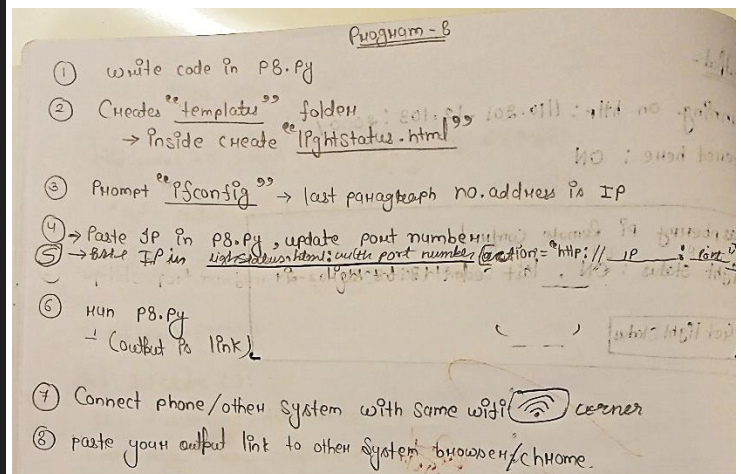 Program - 8
① write code in P8.py
② Creates "templates" folder
→ inside create "lightstatus.html"
③ Prompt "ifconfig" → last paragraph no. address is IP
④ → Paste IP in P8.py, update port number
⑤ → Paste IP in lightstatus.html: with port number (action = "http:// IP : Port
⑥ run P8.py
- (output is link)
⑦ Connect phone/other system with same wifi corner
⑧ paste your output link to other system browser/chrome.